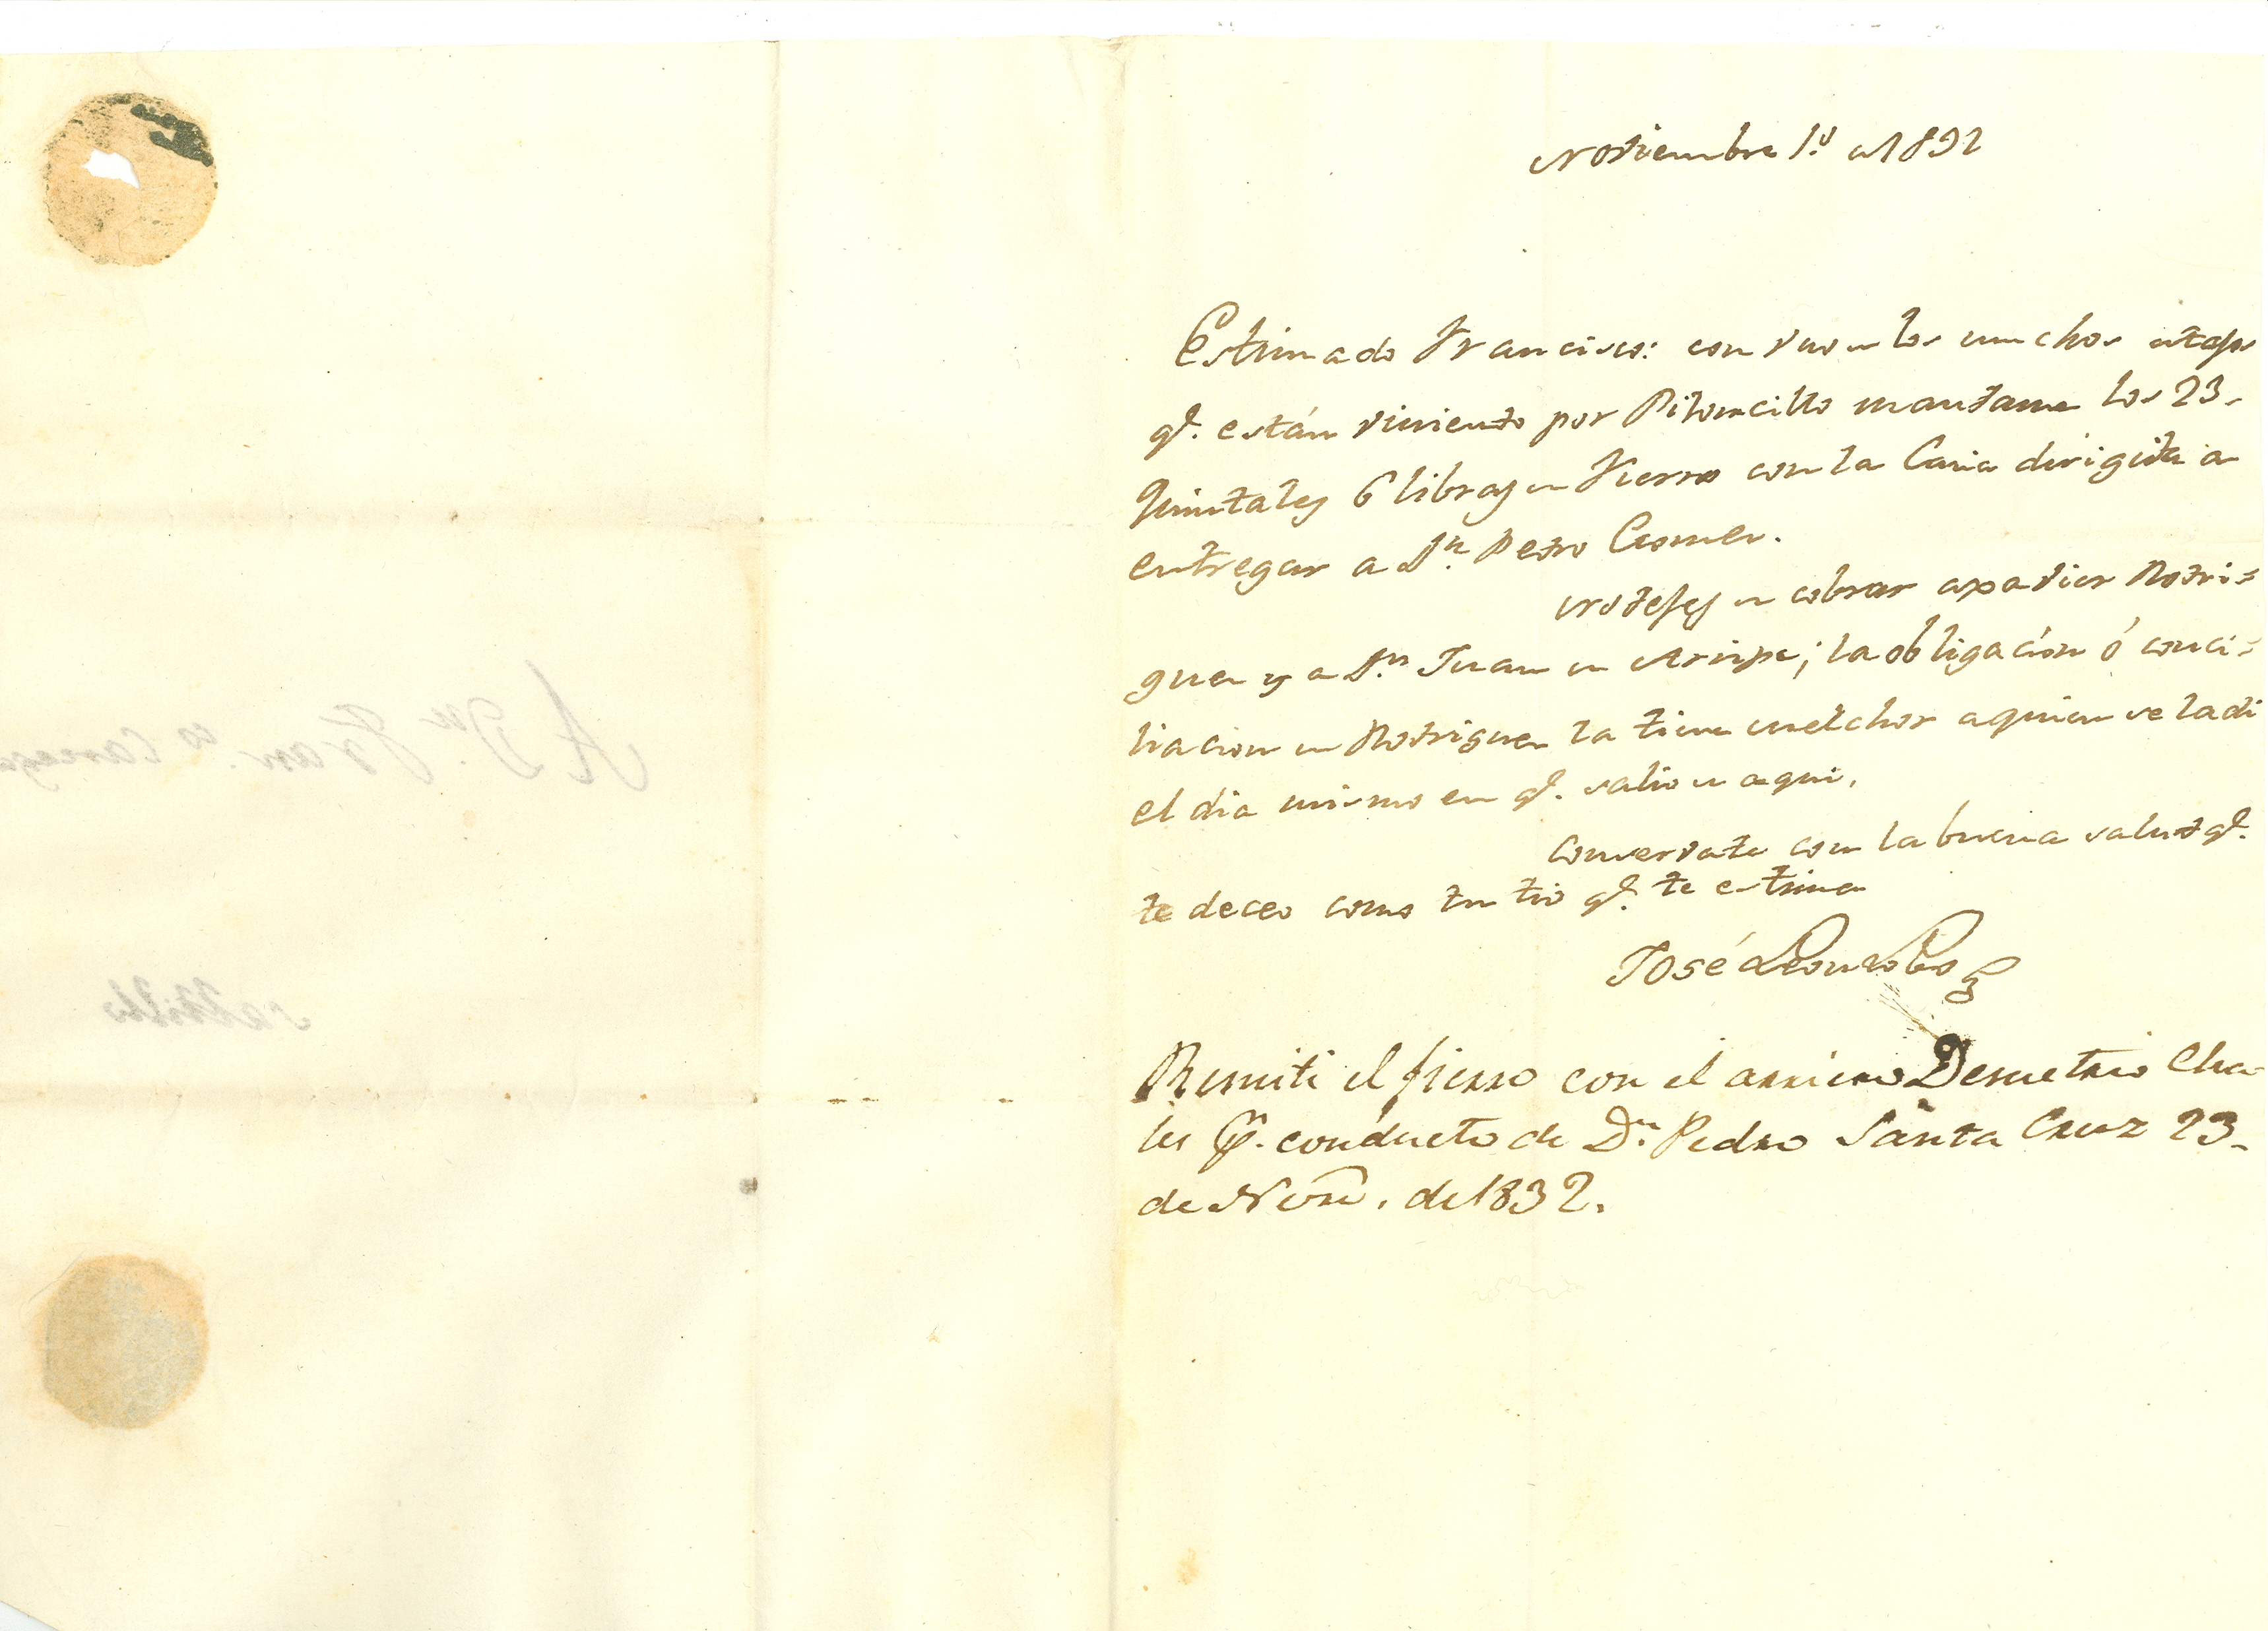 Noviembre 1º de 1832
Estimado Francisco: con uno de los muchos
qe. están viniendo por Piloncillo mandame los 23„
quintales 6 libras de Fierro con la Caria dirigida a
entregar a Dn Pedro Gomez.
no dejes de cobrar a Xavier Rodri=
guez y a Dn. Juan de Arispe; la obligación ó conci=
liacion de Rodriguez la tiene Melchor a quien se la di
el dia mismo en qe. salio de aqui,
Conservate con la buena salud qe.
te deceo como tu tio qe. te estima
José Leon Lobo
Remiti el fierro con el arriero Demetrio Cha-
les Pr. conducto de Dn. Pedro Santa Cruz 23„
de Novre. de 1832.
A Dn. Franco.
Saltillo